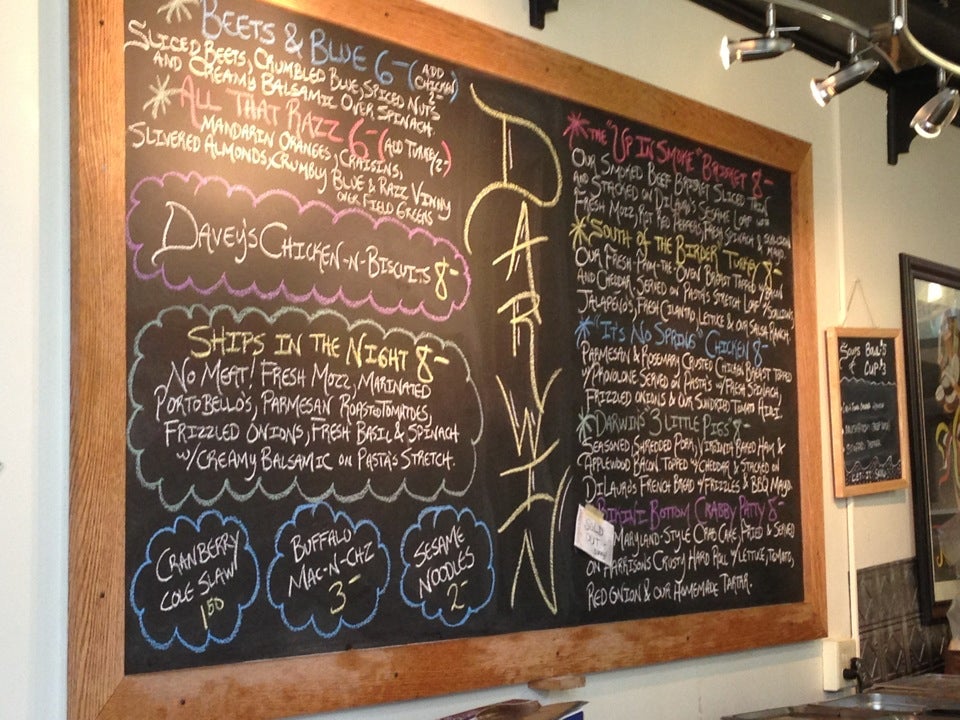 BEETS & BLUE 6- (ADD CHICKEN 2-)
SLICED BEETS, CRUMBLED BLUE, SPICED NUTS
AND CREAMY BALSAMIC OVER SPINACH.
ALL THAT RAZZ 6- (ADD TURKEY 2-)
MANDARIN ORANGES, CRAISINS,
SLIVERED ALMONDS, CRUMBLY BLUE & RAZZ VINNY
OVER FIELD GREENS
DAVEY'S CHICKEN-N-BISCUITS 8-
SHIPS IN THE NIGHT 8-
NO MEAT! FRESH MOZZ, MARINATED
PORTOBELLO'S, PARMESAN ROASTD TOMATOES,
FRIZZLED ONIONS, FRESH BASIL & SPINACH
W/CREAMY BALSAMIC ON PASTA'S STRETCH.
CRANBERRY
COLE SLAW
1.50
BUFFALO
MAC-N-CHZ
3-
SESAME
NOODLES
2-
DARWIN
THE "UP IN SMOKE" BRISKET 8-
OUR SMOKED BEEF BRISKET SLICED THIN
AND STACKED ON DILAURO'S SESAME LOAF WITH
FRESH MOZZ, RST RED PEPPERS, FRESH SPINACH &
MAYO.
"SOUTH OF THE BIRDER" TURKEY 8-
OUR FRESH-FROM-THE-OVEN BREAST TOPPED W/BACON
AND CHEDDAR, SERVED ON PASTA'S STRETCH LOAF W/SCALLIONS,
JALAPEÑO'S, FRESH CILANTRO, LETTUCE & OUR SALSA RANCH.
"IT'S NO SPRING" CHICKEN 8-
PARMESAN & ROSEMARY CRUSTED CHICKEN BREAST TOPPED
W/PROVOLONE SERVED ON PASTA'S W/FRESH SPINACH,
FRIZZLED ONIONS & OUR SUNDRIED TOMATO AIOLI.
DARWIN'S "3 LITTLE PIGS" 8-
SEASONED, SHREDDED PORK, VIRGINIA BAKED HAM &
APPLEWOOD BACON TOPPED W/CHEDDAR & STACKED ON
DILAURO'S FRENCH BREAD W/FRIZZLES & BBQ MAYO.
BIKINI BOTTOM CRABBY PATTY 8-
MARYLAND-STYLE CRAB CAKE, FRIED & SERVED
ON HARRISON'S CRUSTY HARD ROLL W/LETTUCE, TOMATO,
RED ONION & OUR HOMEMADE TARTAR.
SOLD
OUT
SOUPS BOWL 5
CUP 3